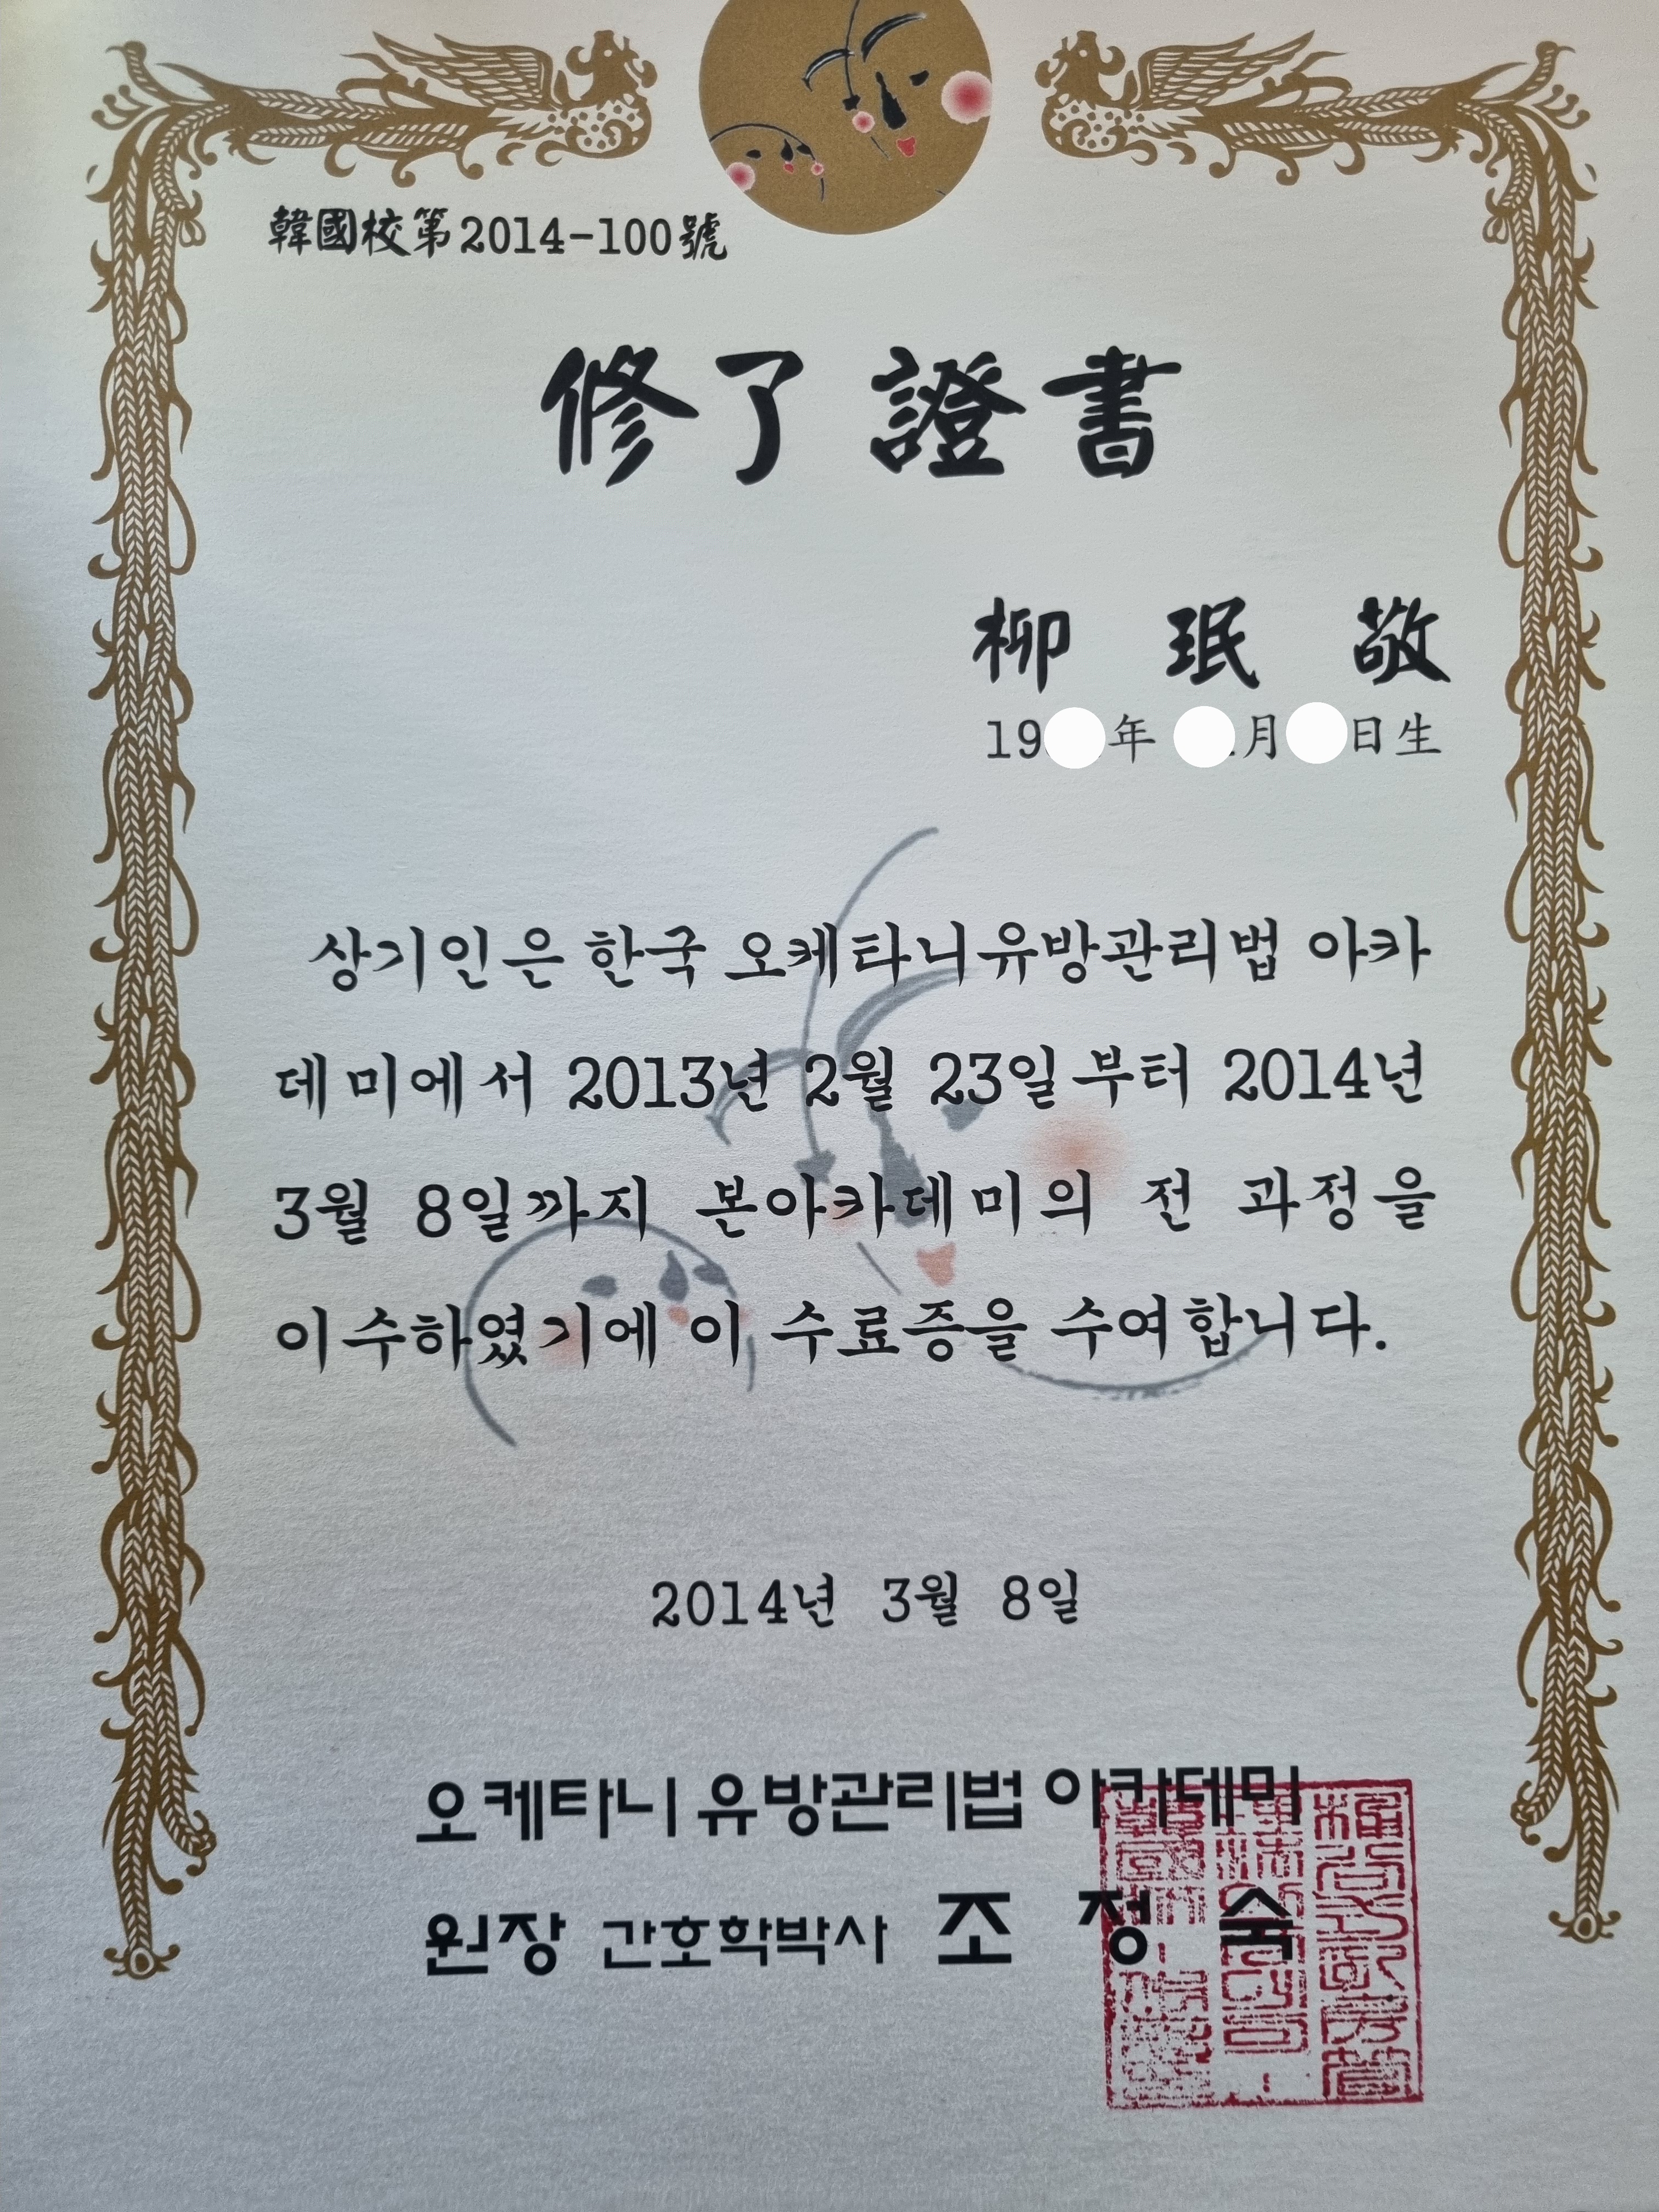 韓國校第2014-100號
修了證書
柳 珉 敬
19 年 月 日生
상기인은 한국 오케타니유방관리법 아카
데미에서 2013년 2월 23일부터 2014년
3월 8일까지 본아카데미의 전 과정을
이수하였기에 이 수료증을 수여합니다.
2014년 3월 8일
오케타니 유방관리법 아카데미
원장 간호학박사 조 정 숙